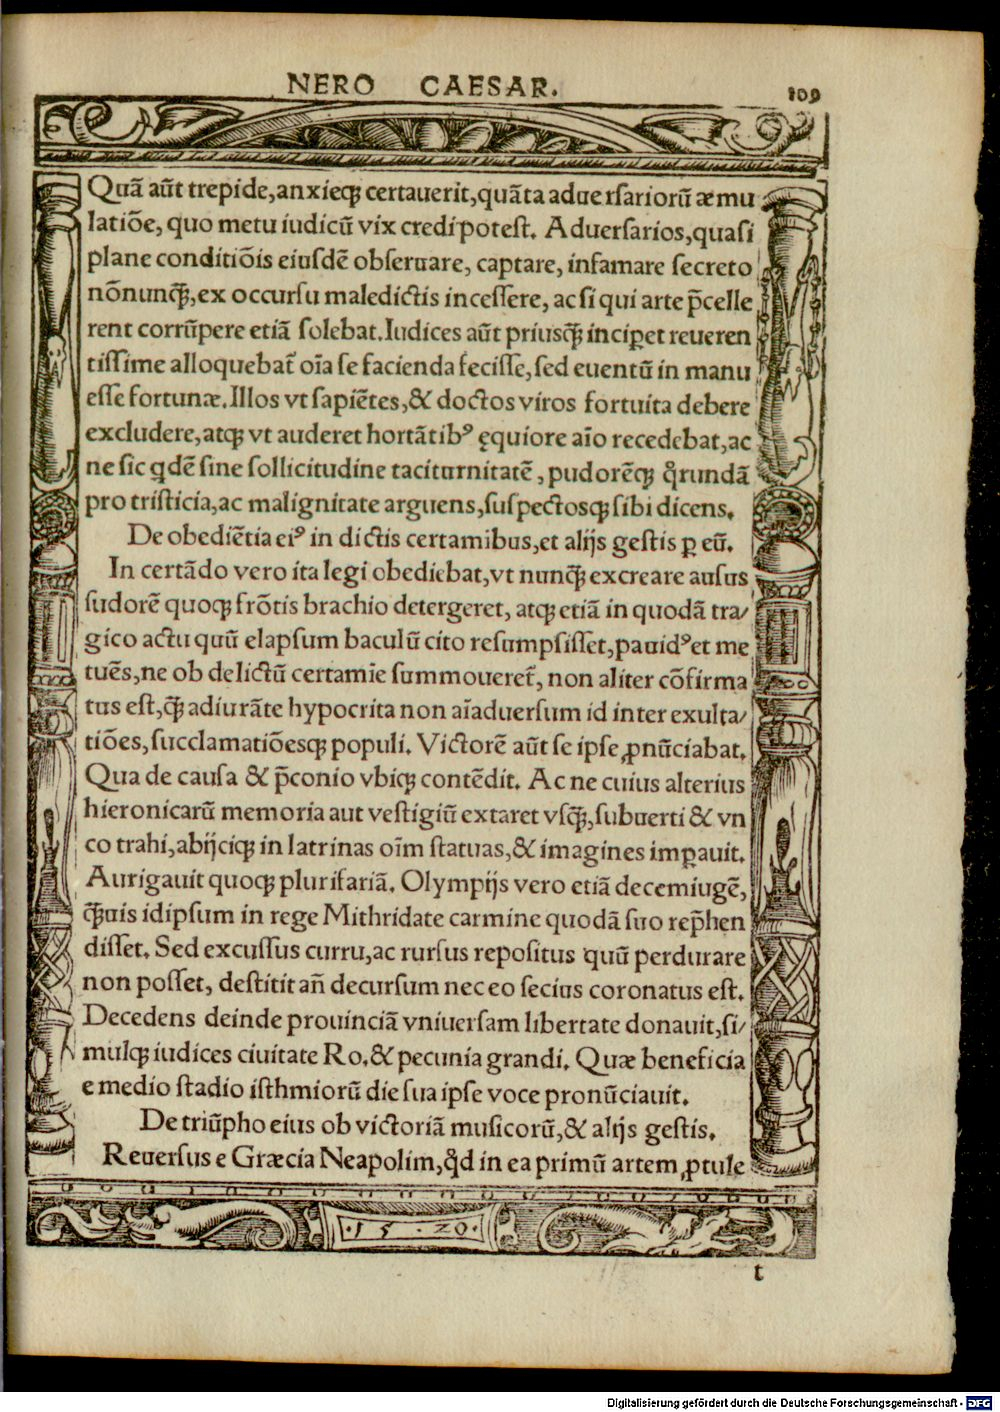 NERO CAESAR. 109
Quã aũt trepide, anxieq̃ certauerit, quãta aduersariorũ æmu
latiõe, quo metu iudicũ vix credi potest. Aduersarios, quasi
plane conditiõis eiusdẽ obseruare, captare, infamare secreto
nõnunq̃, ex occursu maledictis incessere, ac si qui arte p̃celle
rent corrũpere etiã solebat. Iudices aũt priusq̃ inciꝑet reueren
tissime alloquebat̃ oĩa se facienda fecisse, sed euentũ in manu
esse fortunæ. Illos vt sapiẽtes, & doctos viros fortuita debere
excludere, atqꝫ vt auderet hortãtibꝰ ęquiore aĩo recedebat, ac
ne sic qdẽ sine sollicitudine taciturnitatẽ, pudorẽqꝫ q̃rundã
pro tristicia, ac malignitate arguens, suspectosqꝫ sibi dicens.
De obediẽtia eiꝰ in dictis certamibus, et alijs gestis ꝑ eũ.
In certãdo vero ita legi obediebat, vt nunq̃ excreare ausus
sudorẽ quoqꝫ frõtis brachio detergeret, atqꝫ etiã in quodã tra/
gico actu quũ elapsum baculũ cito resumpsisset, pauidꝰ et me
tuẽs, ne ob delictũ certamĩe summoueret̃, non aliter cõfirma
tus est, q̃ adiurãte hypocrita non aĩaduersum id inter exulta/
tiões, succlamatiõesqꝫ populi. Victorẽ aũt se ipse ꝓnũciabat.
Qua de causa & p̃conio vbiqꝫ contẽdit. Ac ne cuius alterius
hieronicarũ memoria aut vestigiũ extaret vsq̃, subuerti & vn
co trahi, abijciqꝫ in latrinas oĩm statuas, & imagines imꝑauit.
Aurigauit quoqꝫ plurifariã. Olympijs vero etiã decemiugẽ,
q̃uis idipsum in rege Mithridate carmine quodã suo rep̃hen
disset. Sed excussus curru, ac rursus repositus quũ perdurare
non posset, destitit añ decursum nec eo secius coronatus est.
Decedens deinde prouinciã vniuersam libertate donauit, si/
mulqꝫ iudices ciuitate Ro. & pecunia grandi. Quæ beneficia
e medio stadio isthmiorũ die sua ipse voce pronũciauit.
De triũpho eius ob victoriã musicorũ, & alijs gestis.
Reuersus e Græcia Neapolim, q̃d in ea primũ artem ꝓtule
·15·20·
t
Digitalisierung gefördert durch die Deutsche Forschungsgemeinschaft - DFG